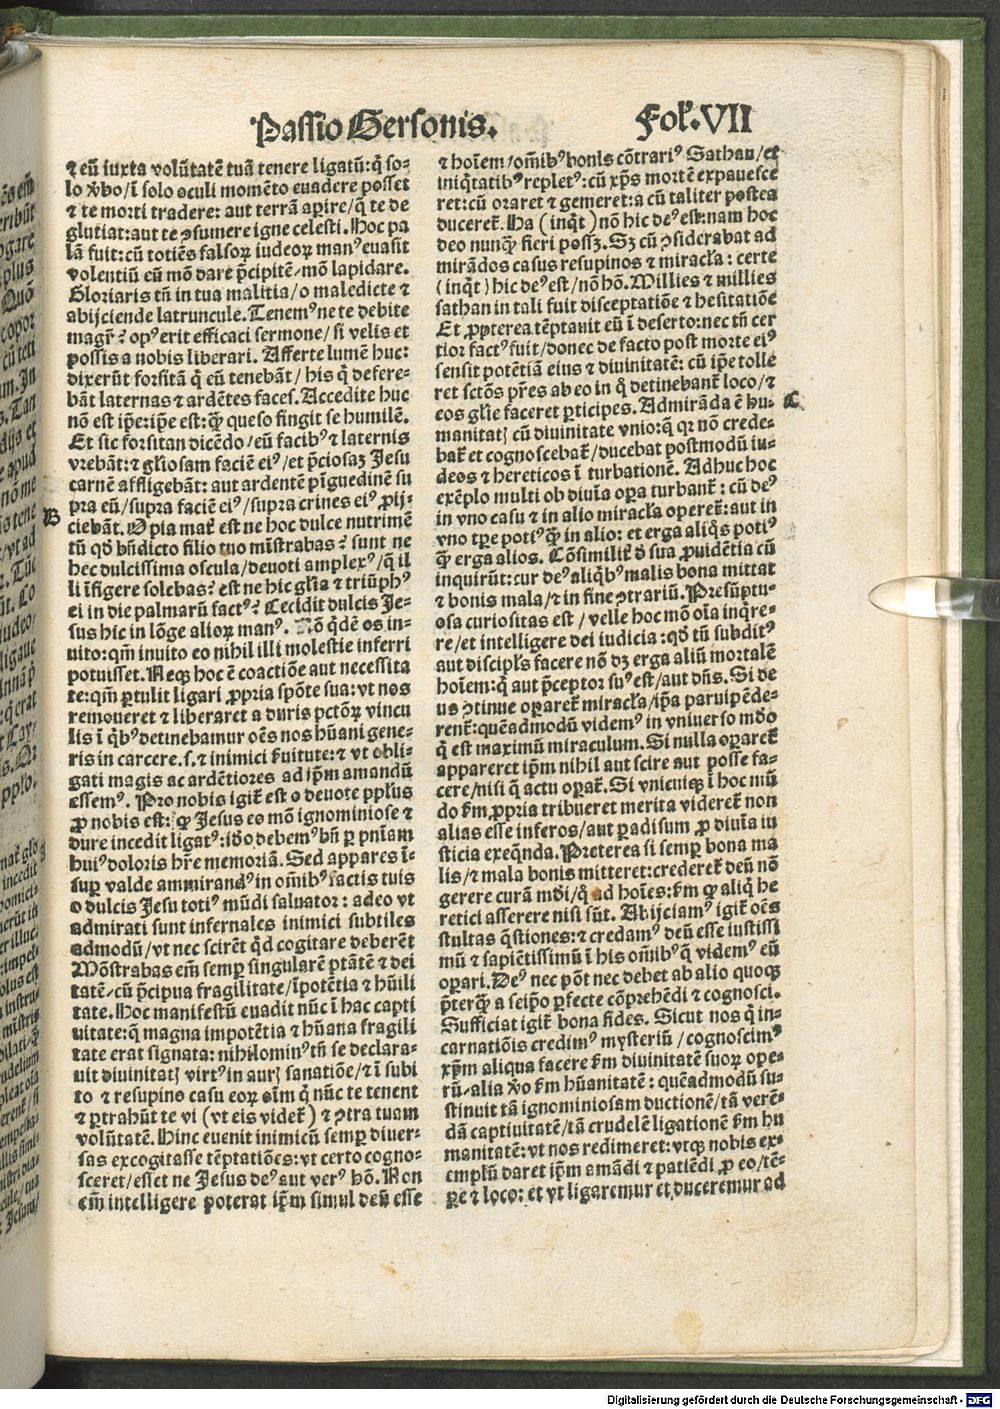 Passio Gersonis. Fol'. VII
⁊ eū iuxta volūtatē tuā tenere ligatū: q̄ so-
lo v̓bo/ ī solo oculi momēto euadere posset
⁊ te morti tradere: aut terrā aꝑire/ q̄ te de
glutiat: aut te ꝯsumere igne celesti. Hoc pa
lā fuit: cū totiēs falsoꝝ iudeoꝝ manꝰ euasit
volentiū eū mō dare p̄cipitē/ mō lapidare.
Gloriaris tn̄ in tua malitia/ o maledicte ⁊
abijciende latruncule. Tenemꝰ ne te debite
magr̄? opꝰ erit efficaci sermone/ si velis et
possis a nobis liberari. Afferte lumē huc:
dixerūt forsitā q̄ eū tenebāt/ his q̄ defere-
bāt laternas ⁊ ardētes faces. Accedite huc
nō est ip̄e: ip̄e est: qꝫ queso fingit se humilē.
Et sic forsitan dicēdo/ eū facibꝰ ⁊ laternis
vrebāt: ⁊ gl̄iosam faciē eiꝰ/ et p̄ciosaꝫ Jesu
carnē affligebāt: aut ardentē pīguedinē su
pra eū/ supra faciē eiꝰ/ supra crines eiꝰ ꝓij-
B
ciebāt. O pia mat̄ est ne hoc dulce nutrimē
tū qd̄ bn̄dicto filio tuo mīstrabas? sunt ne
hec dulcissima oscula/ deuoti amplexꝰ/ q̄ il
li īfigere solebas? est ne hic gl̄ia ⁊ triūphꝰ
ei in die palmarū factꝰ? Cecidit dulcis Je-
sus hic in lōge alioꝝ manꝰ. Nō q̄dē os in-
uito: qm̄ inuito eo nihil illi molestie inferri
potuisset. Neqꝫ hoc ē coactiōe aut necessita
te: qm̄ ꝑtulit ligari ꝓpria spōte sua: vt nos
remoueret ⁊ liberaret a duris pctōꝝ vincu
lis ī q̄bꝰ detinebamur oēs nos hūani gene-
ris in carcere. s. ⁊ inimici s̓uitute: ⁊ vt obli-
gati magis ac ardētiores ad ip̄m amandū
essemꝰ. Pro nobis igit̄ est o deuote pplus
ꝓ nobis est: qꝫ Jesus eo mō ignominiose ⁊
dure incedit ligatꝰ: iđo debemꝰ bn̄ ꝑ pnīam
huiꝰ doloris hr̄e memoriā. Sed appares ī-
suꝑ valde ammirandꝰ in om̄ibꝰ factis tuis
o dulcis Jesu totiꝰ mūdi saluator: adeo vt
admirati sunt infernales inimici subtiles
admodū/ vt nec scirēt qd̄ cogitare deberēt
Mōstrabas em̄ semꝑ singularē ptātē ⁊ dei
tatē/ cū p̄cipua fragilitate/ īpotētia ⁊ hūili
tate. Hoc manifestū euadit nūc ī hac capti
uitate: q̄ magna impotētia ⁊ hūana fragili
tate erat signata: nihilominꝰ tn̄ se declara-
uit diuinitatꝭ virtꝰ in aurꝭ sanatiōe/ ⁊ ī subi
to ⁊ resupino casu eoꝝ oīm q̄ nūc te tenent
⁊ ꝑtrahūt te vi (vt eis videt̄) ⁊ ꝯtra tuam
volūtatē. Hinc euenit inimicū semꝑ diuer-
sas excogitasse tēptatiōes: vt certo cogno-
sceret/ esset ne Jesus deꝰ aut verꝰ hō. Non
em̄ intelligere poterat ip̄m simul deū esse
⁊ hoīem/ om̄ibꝰ bonis cōtrariꝰ Sathan/ et
iniq̄tatibꝰ repletꝰ: cū xp̄s mortē expauesce
ret: cū oraret ⁊ gemeret: a cū taliter postea
duceret̄. Ha (inq̄t) nō hic deꝰ est: nam hoc
deo nunqꝫ fieri possꝫ. Sꝫ cū ꝯsiderabat ad
mirādos casus resupinos ⁊ miracl̄a: certe
(inq̄t) hic deꝰ est/ nō hō. Millies ⁊ millies
sathan in tali fuit disceptatiōe ⁊ hesitatiōe
Et ꝓpterea tēptauit eū ī deserto: nec tn̄ cer
tior factꝰ fuit/ donec de facto post morte eiꝰ
sensit potētiā eius ⁊ diuinitatē: cū ip̄e tolle
ret sctōs pr̄es ab eo in q̄ detinebant̄ loco/ ⁊
eos gl̄ie faceret ꝑticipes. Admirāda ē hu-
C
manitatꝭ cū diuinitate vnio: q̄ qꝛ nō crede-
bat̄ et cognoscebat̄/ ducebat postmodū iu-
deos ⁊ hereticos ī turbationē. Adhuc hoc
exēplo multi ob diuīa oꝑa turbant̄: cū deꝰ
in vno casu ⁊ in alio miracl̄a operet̄: aut in
vno tꝑe potiꝰ qꝫ in alio: et erga aliq̄s potiꝰ
qꝫ erga alios. Cōsimilit̄ đ sua ꝓuidētia cū
inquirūt: cur deꝰ aliq̄bꝰ malis bona mittat
⁊ bonis mala/ ⁊ in fine ꝯtrariū. Presūptu-
osa curiositas est/ velle hoc mō oīa inq̄re-
re/ et intelligere dei iudicia: qd̄ tn̄ subditꝰ
aut discipl̄s facere nō dꝫ erga aliū mortalē
hoīem: q̄ aut p̄ceptor suꝰ est/ aut dn̄s. Si de
us ꝯtinue oꝑaret̄ miracl̄a/ ip̄a paruipēde-
rent̄: quēadmodū videmꝰ in vniuerso mūdo
q̄ est maximū miraculum. Si nulla oꝑaret̄
appareret ip̄m nihil aut scire aut posse fa-
cere/ nisi q̄ actu oꝑat̄. Si vnicuiqꝫ ī hoc mū
do s̄m ꝓpria tribueret merita videret̄ non
alias esse inferos/ aut paradisum ꝓ diuīa iu
sticia exeq̄nda. Preterea si semꝑ bona ma
lis/ ⁊ mala bonis mitteret: crederet̄ deū nō
gerere curā mūdi/ q̄ ad hoīes: s̄m qꝫ aliq̄ he
retici asserere nisi sūt. Abijciamꝰ igit̄ oēs
stultas q̄stiones: ⁊ credamꝰ deū esse iustissi
mū ⁊ sapiētissimū ī his om̄ibꝰ q̄ videmꝰ eū
oꝑari. Deꝰ nec pōt nec debet ab alio quoqꝫ
p̄terqꝫ a seip̄o ꝑfecte cōprehēdi ⁊ cognosci.
Sufficiat igit̄ bona fides. Sicut nos q̄ in-
carnatiōis credimꝰ mysteriū/ cognoscimꝰ
xp̄m aliqua facere s̄m diuinitatē suoꝝ ope-
rū/ alia v̓o s̄m hūanitatē: quēadmodū su-
stinuit tā ignominiosam ductionē/ tā verē-
dā captiuitatē/ tā crudelē ligationē s̄m hu
manitatē: vt nos redimeret: vtqꝫ nobis ex-
emplū daret ip̄m amādi ⁊ patiēdi ꝓ eo/ tē-
ꝑe ⁊ loco: et vt ligaremur et duceremur ad
Digitalisierung gefördert durch die Deutsche Forschungsgemeinschaft - DFG